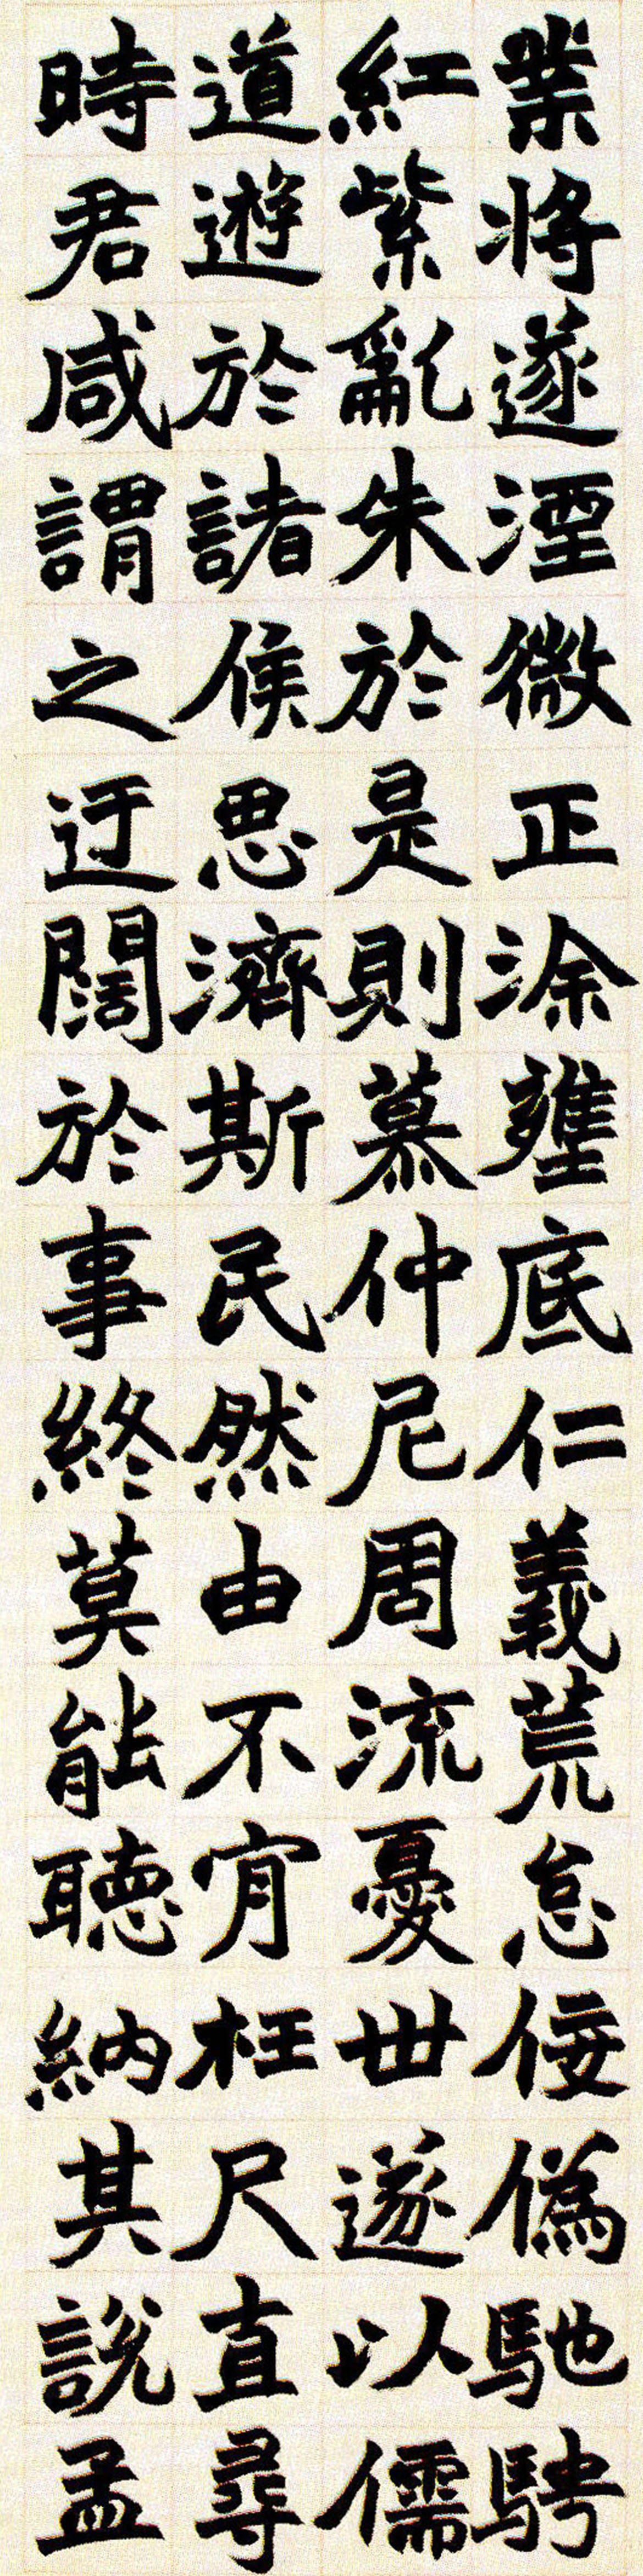 業將遂湮微正涂壅底仁義荒怠佞僞馳騁
紅紫亂朱於是則慕仲尼周流憂世遂以儒
道遊於諸侯思濟斯民然由不肯枉尺直尋
時君咸謂之迂闊於事終莫能聽納其說孟